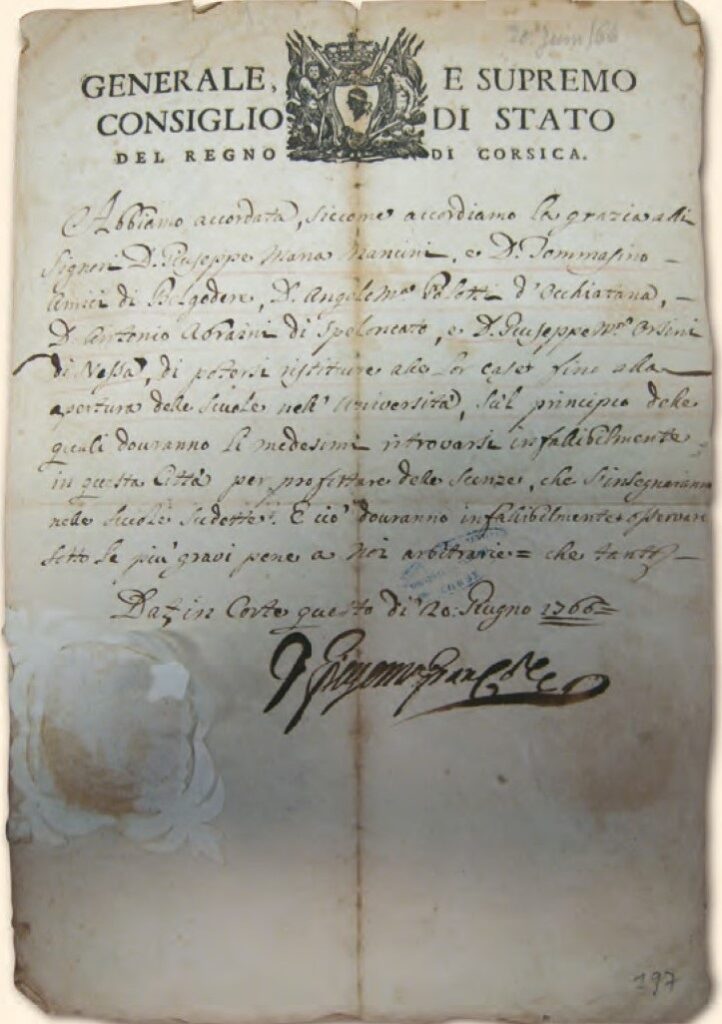 20. Juin/66
GENERALE, E SUPREMO
CONSIGLIO DI STATO
DEL REGNO DI CORSICA.
Abbiamo accordata, siccome accordiamo la grazia alli
Signori D. Giuseppe Maria Mancini, e D. Tommasino
Amici di Belgodere, D. Angelo Mª Polotti d'Occhiatana,
D. Antonio Abraini di Speloncato, e D. Giuseppe Mª Orsini
di Nessa, di potersi ristituire alle Lor case fino alla
apertura delle scuole nell' Università, sul principio delle
quali douranno li medesimi ritrovarsi infallibilmente
in questa Città per profittare delle Scienze, che s'insegneranno
nelle scuole sudette. E ciò douranno infallibilmente osservare
sotto le più gravi pene a Noi arbitrarie = che tanto
Dat. in Corte questo dì 20: Giugno 1766 =
197